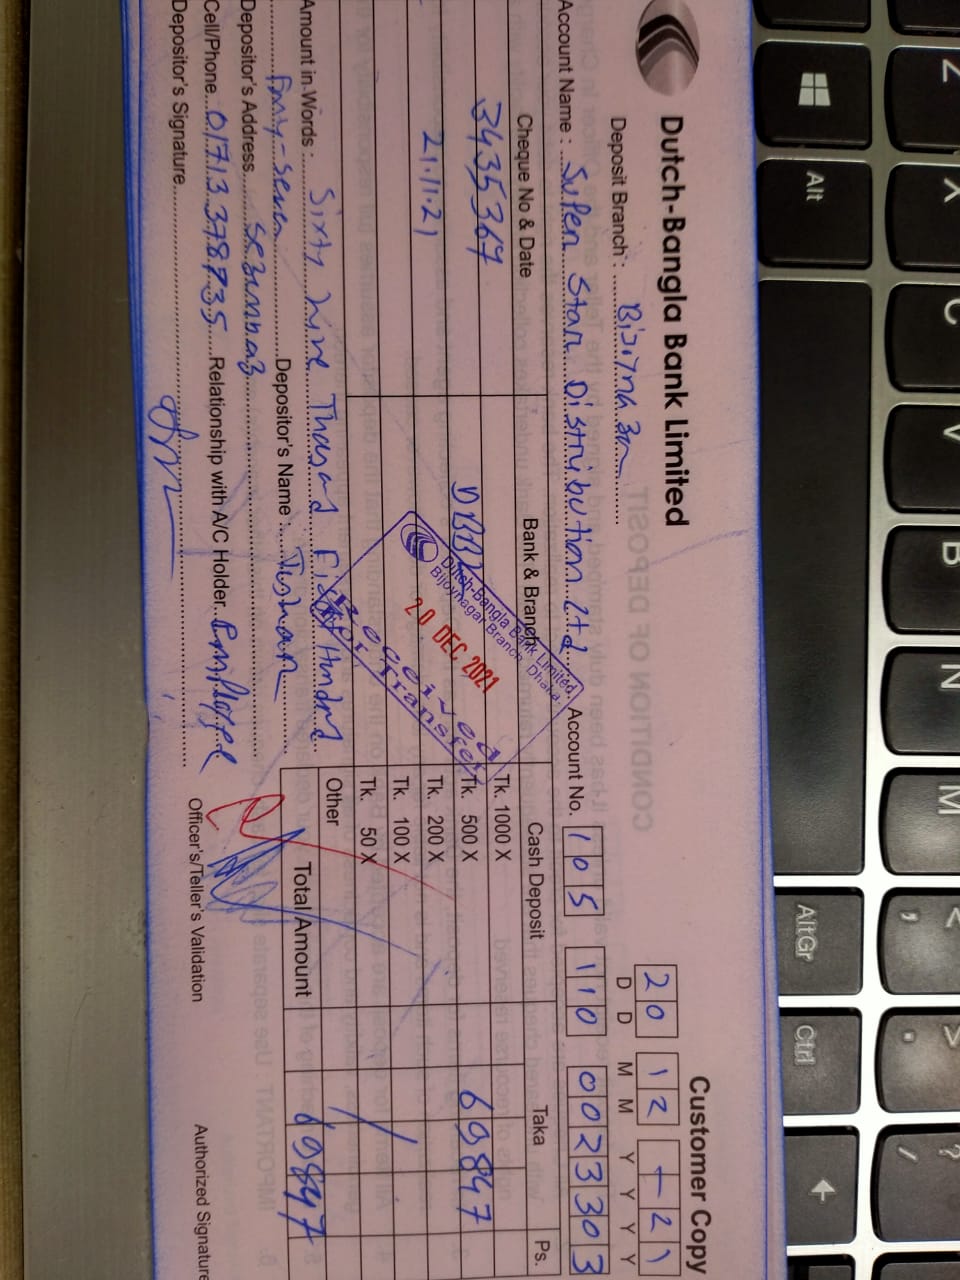 Dutch-Bangla Bank Limited
Customer Copy
Deposit Branch :
20 12 21
D D M M Y Y Y Y
Account Name : Super Star Distribution Ltd
Account No. 105 110 0023303
Cheque No & Date
Bank & Branch
Cash Deposit
Taka
Ps.
3435367
DBBL
Tk. 1000 X
Tk. 500 X
69847
21.11.21
Tk. 200 X
Tk. 100 X
Tk. 50 X
Other
Total Amount
69847
Dutch-Bangla Bank Limited.
Bijoynagar Branch, Dhaka
20 DEC 2021
Received
Transfer
Amount in Words : Sixty Nine Thasand Eight Hundred
Forty-Seven
Depositor's Name : Tushar
Depositor's Address
Cell/Phone 01713378735 Relationship with A/C Holder Employee
Depositor's Signature
Officer's/Teller's Validation
Authorized Signature
CONDITION OF DEPOSIT
IMPORTANT
Z X C V B N M
Alt
AltGr
Ctrl